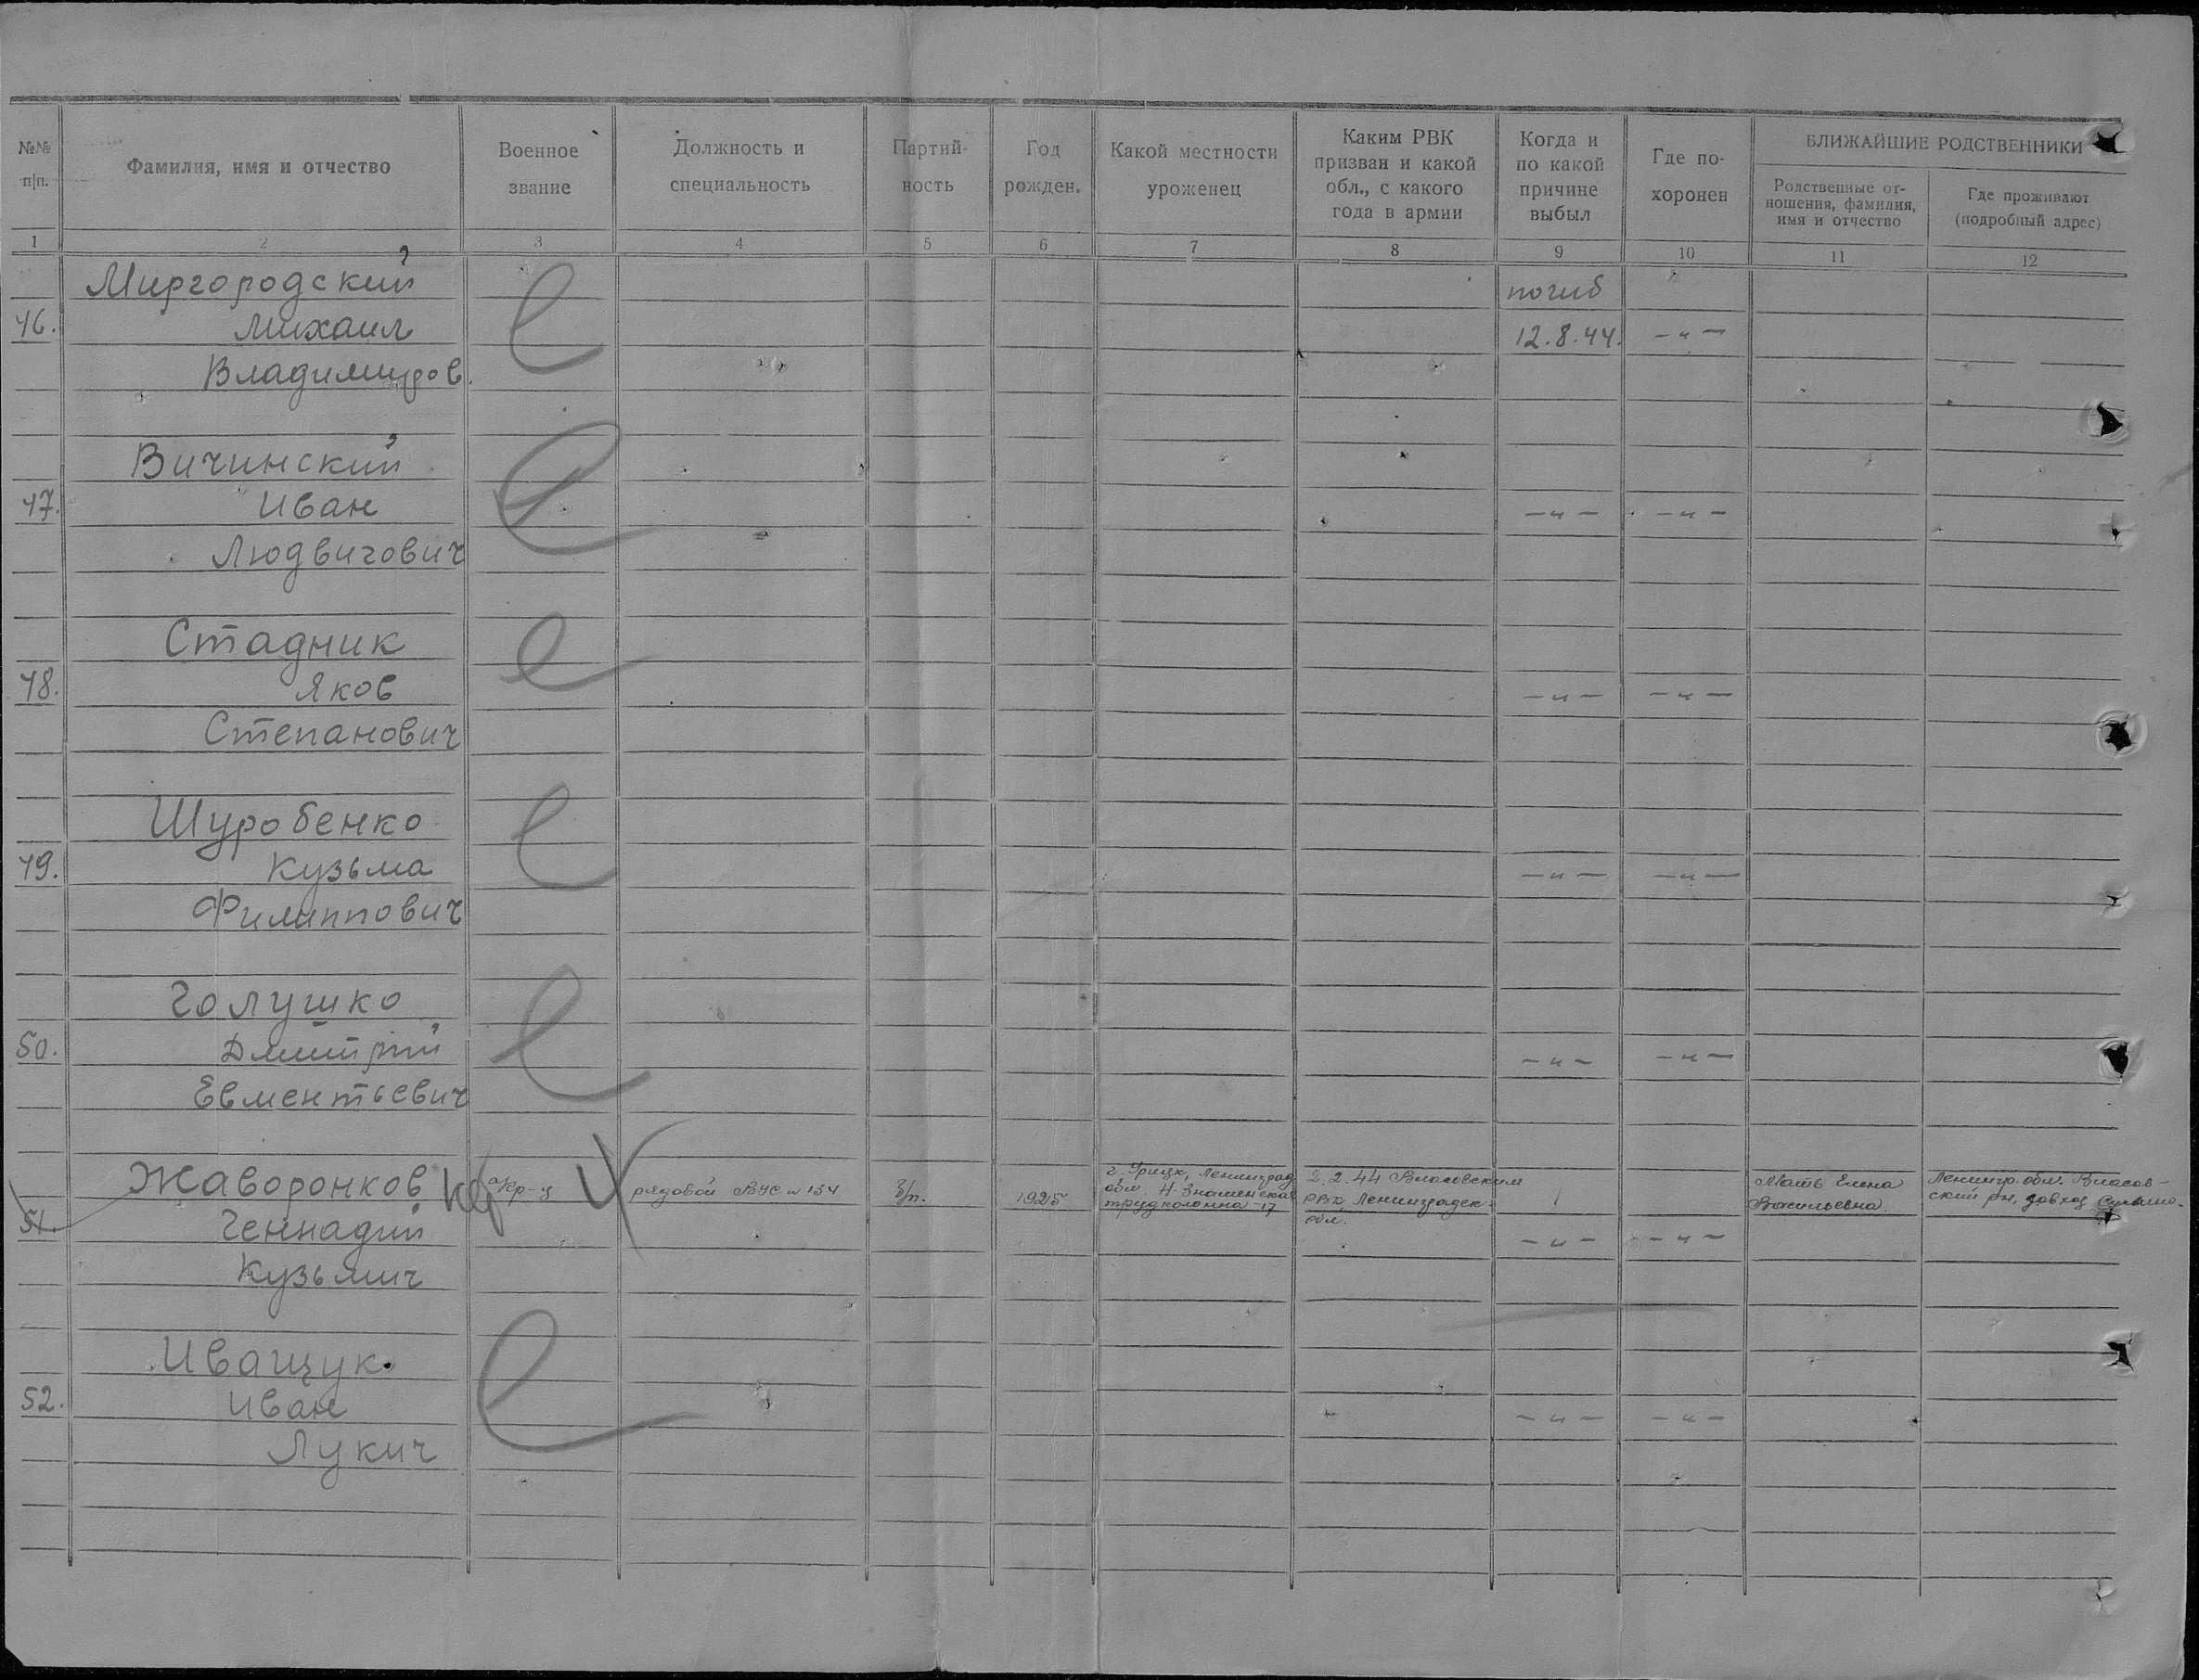 №№ п/п.
Фамилия, имя и отчество
Военное звание
Должность и специальность
Партий-ность
Год рожден.
Какой местности уроженец
Каким РВК призван и какой обл., с какого года в армии
Когда и по какой причине выбыл
Где по-хоронен
БЛИЖАЙШИЕ РОДСТВЕННИКИ
Родственные от-ношения, фамилия, имя и отчество
Где проживают (подробный адрес)
1 2 3 4 5 6 7 8 9 10 11 12
Миргородский погиб
46. Михаил 12.8.44. -"-
Владимиров.
Вичинский
47. Иван -"- -"-
Людвигович
Стадник
48. Яков -"- -"-
Степанович
Шуробенко
49. Кузьма -"- -"-
Филиппович
Голушко
50. Дмитрий -"- -"-
Евментьевич
Жаворонков кр-ц рядовой ВУС № 134 б/п. 1925
г. Урицк, Ленинград
обл.
трудколонна-17
2.2.44
РВК Ленинградск.
обл.
Мать Елена
Васильевна
Ленингр. обл.
ский рн,
51. Геннадий -"- -"-
Кузьмич
Иващук.
52. Иван -"- -"-
Лукич